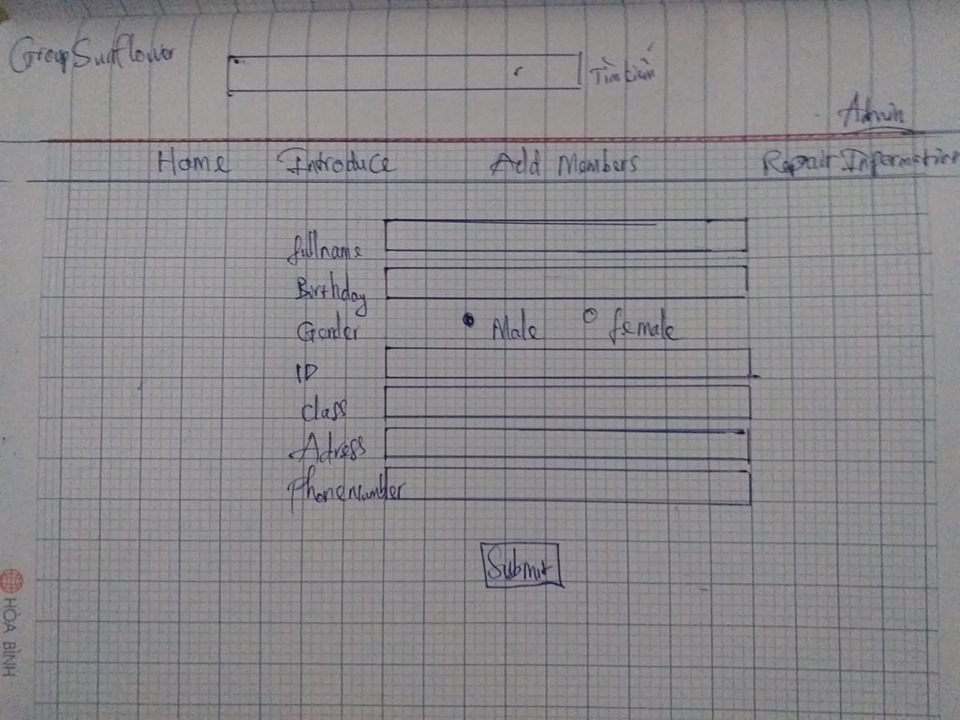 GroupSunflower
Tìm kiếm
Admin
Home Introduce Add Members Repair Information
fullname
Birthday
Gender Male female
ID
class
Adress
Phonenumber
Submit
HÒA BÌNH